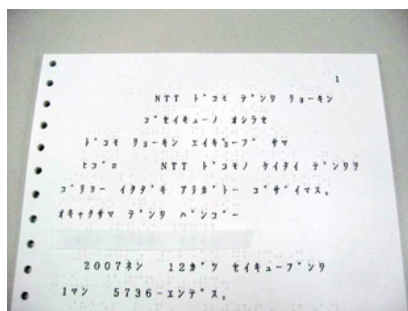 1
NTT ドコモ デンワ リョーキン
ゴセイキューノ オシラセ
ドコモ リョーキン エイギョーブ サマ
ヒゴロ NTT ドコモノ ケイタイ デンワヲ
ゴリヨー イタダキ アリガトー ゴザイマス。
オキャクサマ デンワ バンゴー
2007ネン 12ガツ セイキューブンワ
1マン 5736-エンデス。